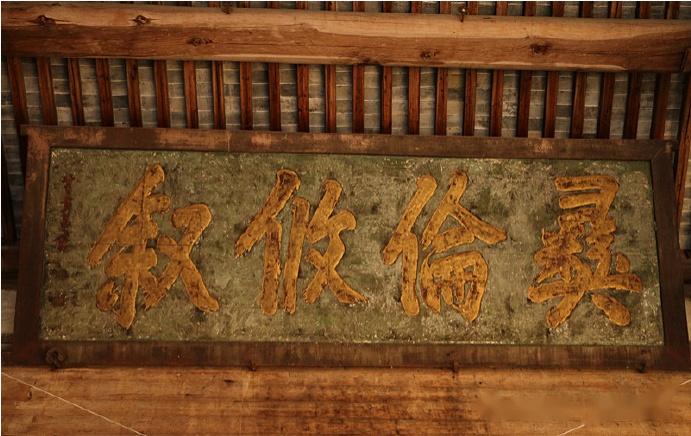 彝倫攸叙